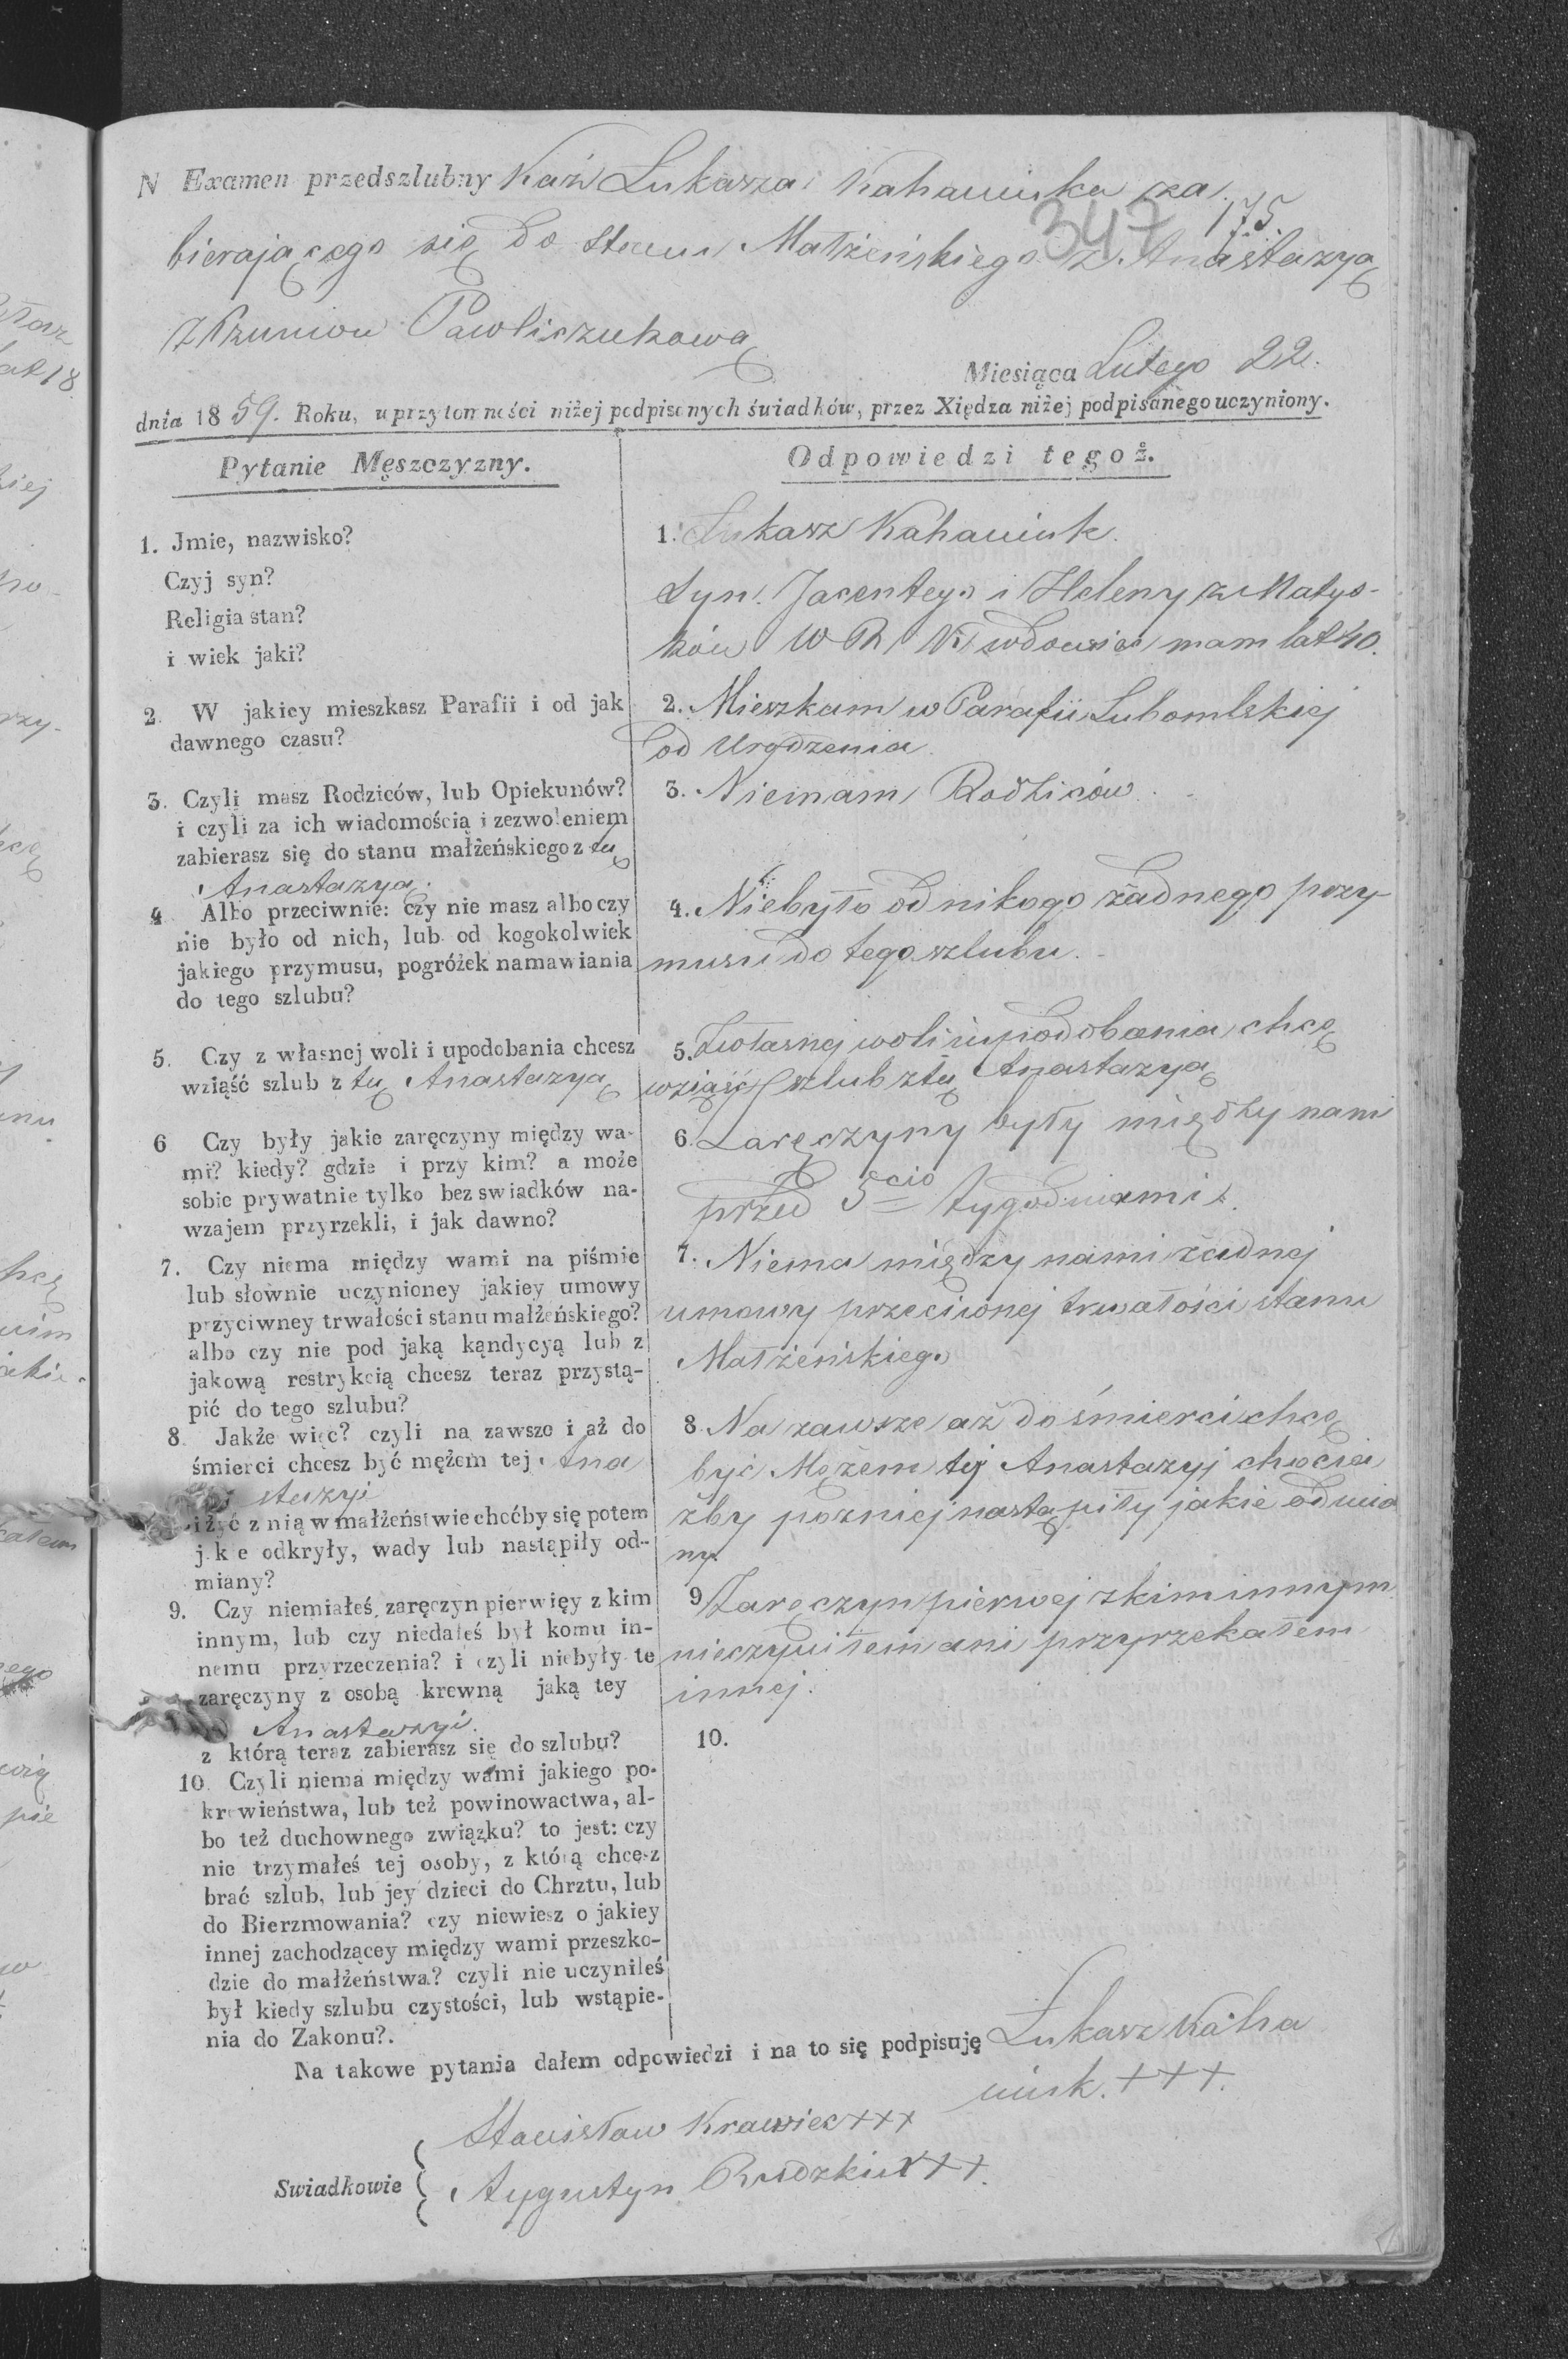 N Examen przedszlubny Kaz Łukasza Kahaniuka za
347 175
bierającego się do Stanu Małżeńskiego z Anastazyą
Pawliczukową
Miesiąca Lutego 22.
dnia 1859. Roku, uprzytomności niżej podpisanych świadków, przez Xiędza niżej podpisanego uczyniony.
Pytanie Męszczyzny.
Odpowiedzi tegoż.
1. Jmie, nazwisko?
Czyj syn?
Religia stan?
i wiek jaki?
1. Łukasz Kahaniuk.
Syn Jacentego i Heleny z Matys-
ków W R K wdowiec mam lat 40.
2. W jakiey mieszkasz Parafii i od jak
dawnego czasu?
2. Mieszkam w Parafii Lubomlskiej
od Urodzenia
3. Czyli masz Rodziców, lub Opiekunów?
i czyli za ich wiadomością i zezwoleniem
zabierasz się do stanu małżeńskiego z tą
Anastazyą.
3. Niemam Rodziców.
4 Albo przeciwnie: czy nie masz albo czy
nie było od nich, lub od kogokolwiek
jakiego przymusu, pogróżek namawiania
do tego szlubu?
4. Niebyło od nikogo żadnego przy-
musu do tego szlubu.
5. Czy z własnej woli i upodobania chcesz
wziąść szlub z tą Anastazyą
5. Zwłasnej woli i upodobania chcę
wziąść szlub ztą Anastazyą
6 Czy były jakie zaręczyny między wa-
mi? kiedy? gdzie i przy kim? a może
sobie prywatnie tylko bez swiadków na-
wzajem przyrzekli, i jak dawno?
6. Zaręczyny były między nami
przed 5cio tygodniami.
7. Czy niema między wami na piśmie
lub słownie uczynioney jakiey umowy
przyciwney trwałości stanu małżeńskiego?
albo czy nie pod jaką kąndycyą lub z
jakową restrykcią chcesz teraz przystą-
pić do tego szlubu?
7. Niema między nami żadnej
umowy przeciwnej trwałości stanu
Małżeńskiego
8. Jakże więc? czyli na zawsze i aż do
śmierci chcesz być mężem tej Ana
stazyi
i żyć z nią w małżeństwie choćby się potem
jakie odkryły, wady lub nastąpiły od-
miany?
8. Na zawsze aż do śmierci chcę
być Mężem tej Anastazyj chocia
żby pozniej nastąpiły jakie odmia
ny.
9. Czy niemiałeś zaręczyn pierwięy z kim
innym, lub czy niedałeś był komu in-
nemu przyrzeczenia? i czyli niebyły te
zaręczyny z osobą krewną jaką tey
Anastazyi.
z którą teraz zabierasz się do szlubu?
9 Zaręczyn pierwej zkim innym
nieczyniłem ani przyrzekałem
innej.
10. Czyli niema między wami jakiego po-
krewieństwa, lub też powinowactwa, al-
bo też duchownego związku? to jest: czy
nie trzymałeś tej osoby, z którą chcesz
brać szlub, lub jey dzieci do Chrztu, lub
do Bierzmowania? czy niewiesz o jakiey
innej zachodzącey między wami przeszko-
dzie do małżeństwa? czyli nie uczyniłeś
był kiedy szlubu czystości, lub wstąpie-
nia do Zakonu?.
10.
Na takowe pytania dałem odpowiedzi i na to się podpisuję Łukasz Kaha
niuk. +++.
Swiadkowie
Stanisław Krawiec +++
Aygustyn Rudzki +++.